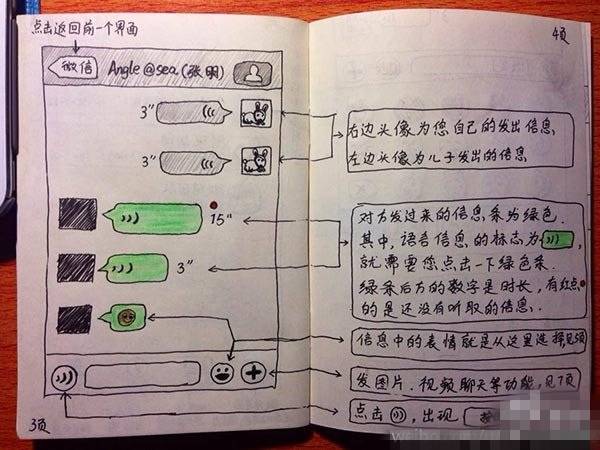 点击返回前一个界面
微信
Angle@sea(张明)
3"
3"
15"
3"
3页
4页
右边头像为您自己的发出信息
左边头像为儿子发出的信息
对方发过来的信息条为绿色.
其中,语音信息的标志为
就需要您点击一下绿色条.
绿条后方的数字是时长,有红点
的是还没有听取的信息.
信息中的表情就是从这里选择,见
发图片.视频聊天等功能,见7页
点击 ,出现
weibo